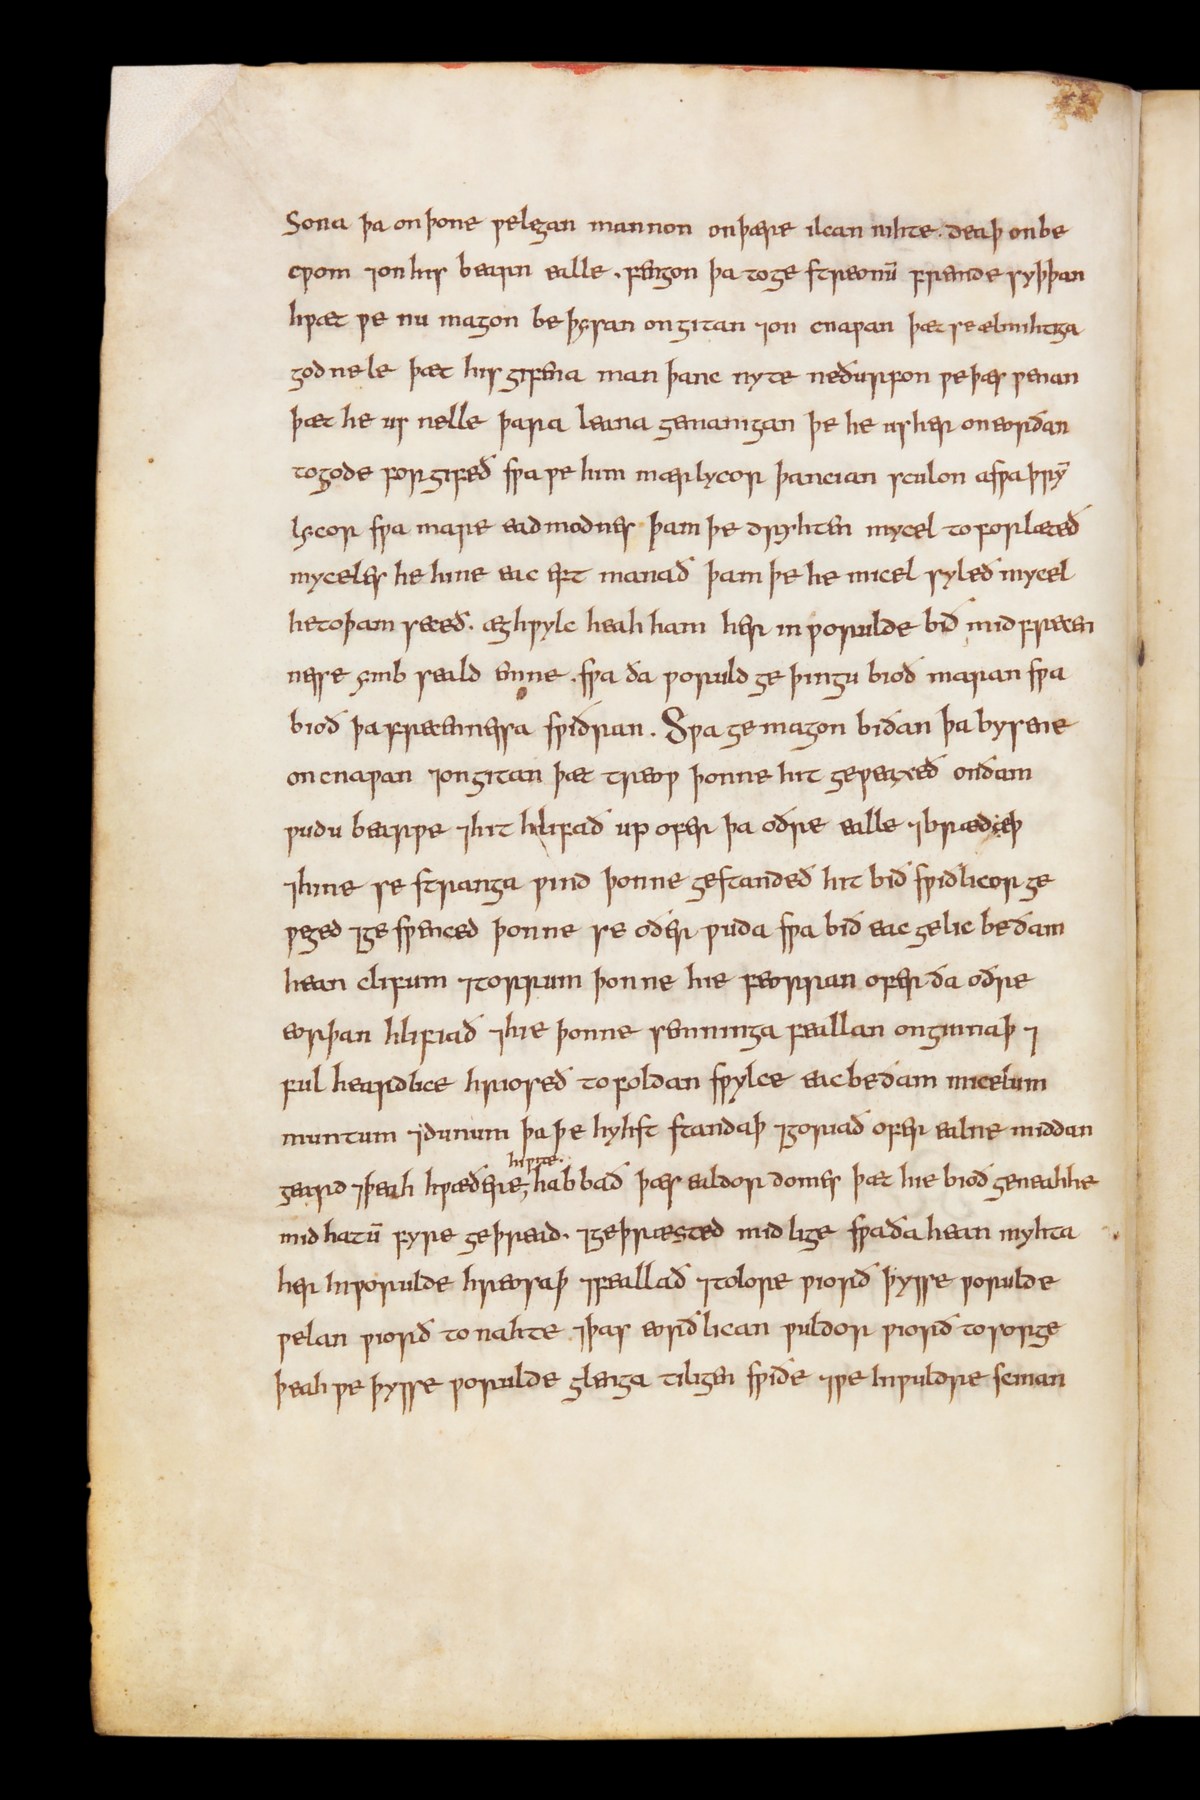 Sona þa on þone ƿelegan mannon on þære ilcan nihte. deaþ on be
cƿom ⁊on his bearn ealle. fengon þa to ge streonū fremde syþþan
hƿæt ƿe nu magon be þysan ongitan ⁊on cnapan þæt se ælmihtiga
god nele þæt his gifena man þanc nyte ne ðurfon ƿe þæs ƿenan
þæt he us nelle þara leana gemanigan þe he us her on eorðan
to gode forgifeð sƿa ƿe him mærlycor þancian sculon a sƿa þrȳ
lycor sƿa mare eadmodnes þam þe dryhten mycel to forlæteð
myceles he hine eac eft manað þam þe he micel syleð mycel
he to þam seceð. æghƿylc heah ham her in ƿorulde bið mid frecen
nesse ymb seald emne. sƿa ða ƿoruld ge þingu bioð maran sƿa
bioð þa frecennessa sƿiðran. Sƿa ge magon bi ðan þa bysene
oncnapan ⁊ongitan þæt treoƿ þonne hit geƿeaxeð on ðam
ƿudu bearƿe ⁊hit hlifað up ofer þa oðre ealle ⁊brædeþ
⁊hine se stranga ƿind þonne gestandeð hit bið sƿiðlicor ge
ƿeged ⁊ge sƿenced þonne se oðer ƿuda sƿa bið eac gelic be ðam
hean clifum ⁊torrum þonne hie feorran ofer ða oðre
eorþan hlifiað ⁊hie þonne semninga feallan onginnaþ ⁊
ful heardlice hrioseð to foldan sƿylce eac be ðam micelum
muntum ⁊dunum þa þe hyhst standaþ ⁊goriað ofer ealne middan
geard ⁊þeah hƿæðere hƿite. habbað þæs ealdordomes þæt hie bioð geneahhe
mid hatū fyre geþread. ⁊geþræsted mid lige sƿa ða hean myhta
her in ƿorulde hreosaþ ⁊feallað ⁊to lore ƿiorð þysse ƿorulde
ƿelan ƿiorð to nahte ⁊þas eorðlican ƿuldor ƿiorð to sorge
þeah ƿe þysse ƿorulde glenga tiligen sƿiðe ⁊ƿe in ƿuldre scinan